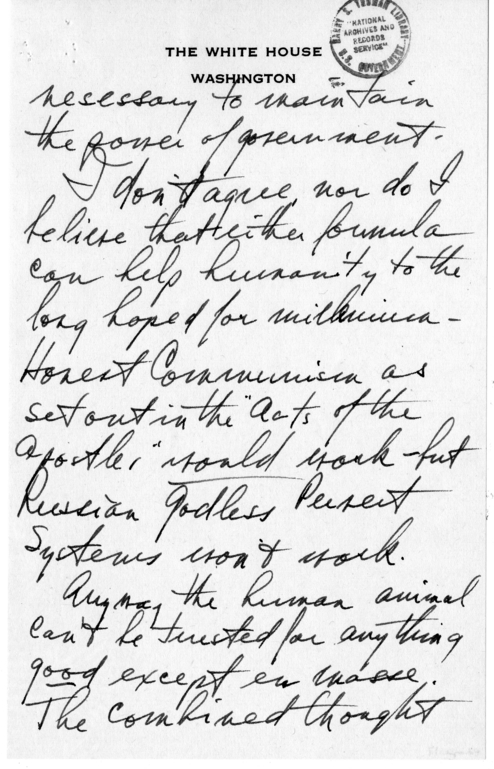 THE WHITE HOUSE
WASHINGTON
HARRY S. TRUMAN LIBRARY
"NATIONAL
ARCHIVES AND
RECORDS
SERVICE"
U.S. GOVERNMENT
nesessary to maintain
the power of government.
I don't agree, nor do I
believe that either formula
can help humanity to the
long hoped for millenium-
Honest Communism as
set out in the "Acts of the
Apostles" would work - but
Russian Godless Pervert
Systems won't work.
Anyway the human animal
can't be trusted for anything
good except en masse.
The combined thought